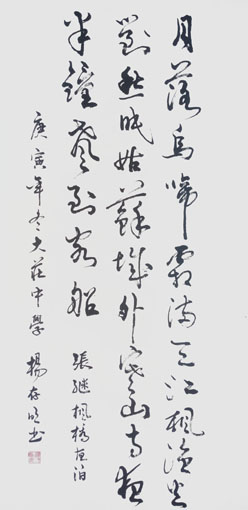 月落烏啼霜滿天江楓漁火
對愁眠姑蘇城外寒山寺夜
半鐘聲到客船
張继楓橋夜泊
庚寅年冬大莊中學 楊存